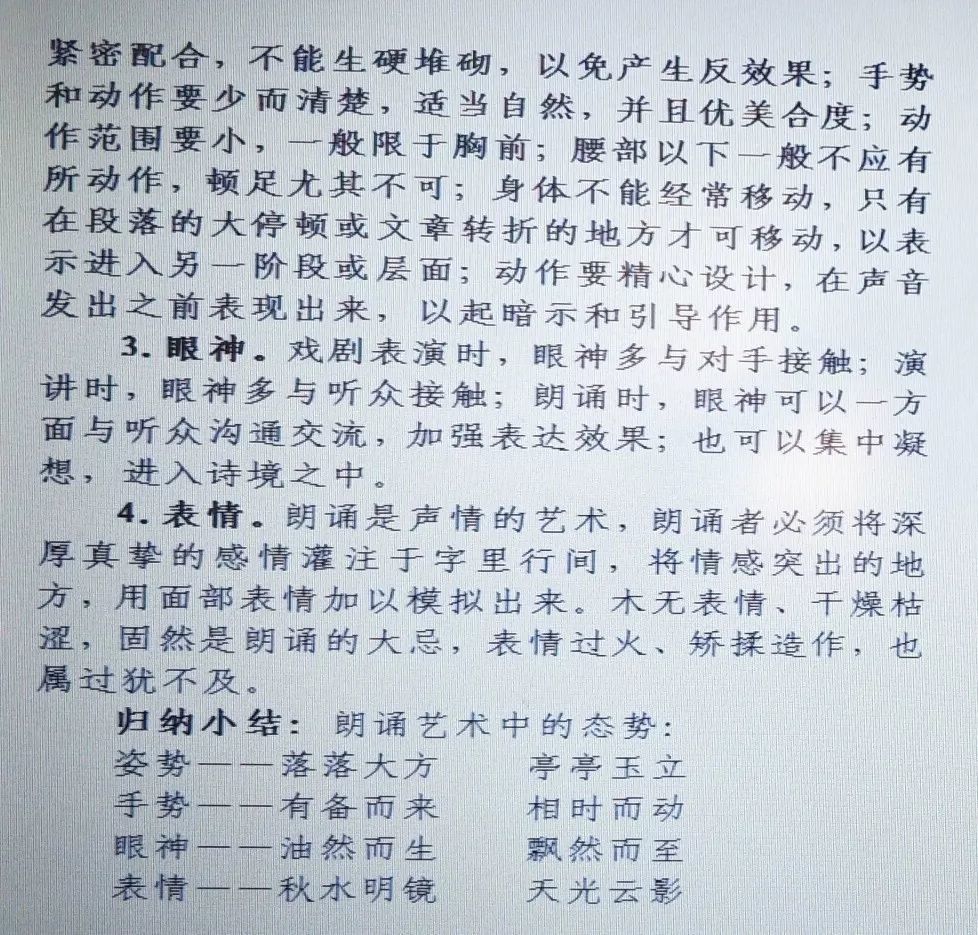 紧密配合，不能生硬堆砌，以免产生反效果；手势
和动作要少而清楚，适当自然，并且优美合度；动
作范围要小，一般限于胸前；腰部以下一般不应有
所动作，顿足尤其不可；身体不能经常移动，只有
在段落的大停顿或文章转折的地方才可移动，以表
示进入另一阶段或层面；动作要精心设计，在声音
发出之前表现出来，以起暗示和引导作用。
3. 眼神。戏剧表演时，眼神多与对手接触；演
讲时，眼神多与听众接触；朗诵时，眼神可以一方
面与听众沟通交流，加强表达效果；也可以集中凝
想，进入诗境之中。
4. 表情。朗诵是声情的艺术，朗诵者必须将深
厚真挚的感情灌注于字里行间，将情感突出的地
方，用面部表情加以模拟出来。木无表情、干燥枯
涩，固然是朗诵的大忌，表情过火、矫揉造作，也
属过犹不及。
归纳小结：朗诵艺术中的态势：
姿势——落落大方 亭亭玉立
手势——有备而来 相时而动
眼神——油然而生 飘然而至
表情——秋水明镜 天光云影